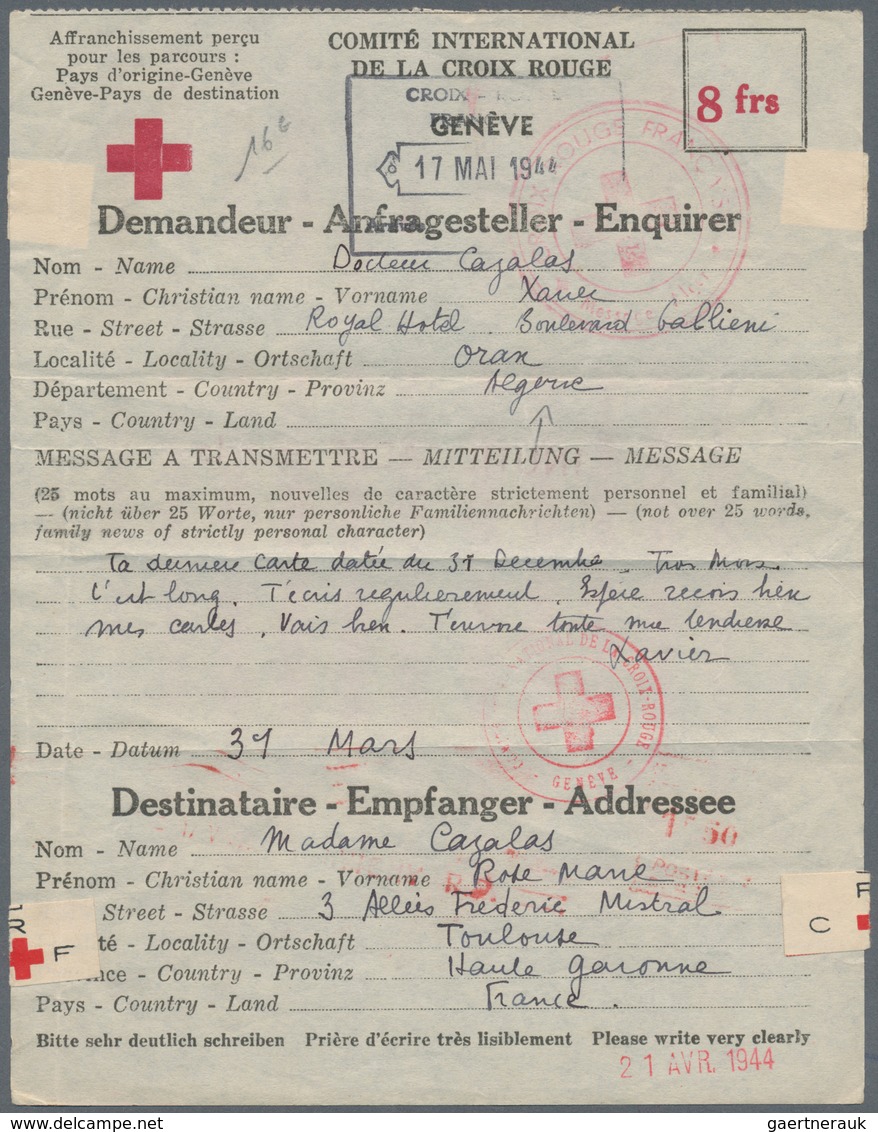 Affranchissement perçu
pour les parcours :
Pays d'origine-Genève
Genève-Pays de destination
COMITÉ INTERNATIONAL
DE LA CROIX ROUGE
GENÈVE
8 frs
16e
CROIX - ROUGE
FRANC
17 MAI 1944
CROIX ROUGE FRANÇAISE
Demandeur - Anfragesteller - Enquirer
Nom - Name Docteur Cazalas
Prénom - Christian name - Vorname Xavier
Rue - Street - Strasse Royal Hotel. Boulevard Gallieni
Localité - Locality - Ortschaft Oran
Département - Country - Provinz Algerie
Pays - Country - Land
MESSAGE A TRANSMETTRE — MITTEILUNG — MESSAGE
(25 mots au maximum, nouvelles de caractère strictement personnel et familial)
— (nicht über 25 Worte, nur personliche Familiennachrichten) — (not over 25 words,
family news of strictly personal character)
Ta derniere carte datée du 31 Decembre. Trois Mois.
C'est long. T'écris regulierement. Espère reçois bien
mes cartes. Vais bien. T'envoie toute ma tendresse
Xavier
NATIONAL DE LA CROIX-ROUGE
GENÈVE
Date - Datum 31 Mars
Destinataire - Empfanger - Addressee
Nom - Name Madame Cazalas
Prénom - Christian name - Vorname Rose Marie
Street - Strasse 3 Allées Frederic Mistral
té - Locality - Ortschaft Toulouse
nce - Country - Provinz Haute Garonne
Pays - Country - Land France.
R F
F C
Bitte sehr deutlich schreiben Prière d'écrire très lisiblement Please write very clearly
21 AVR. 1944
gaertnerauk